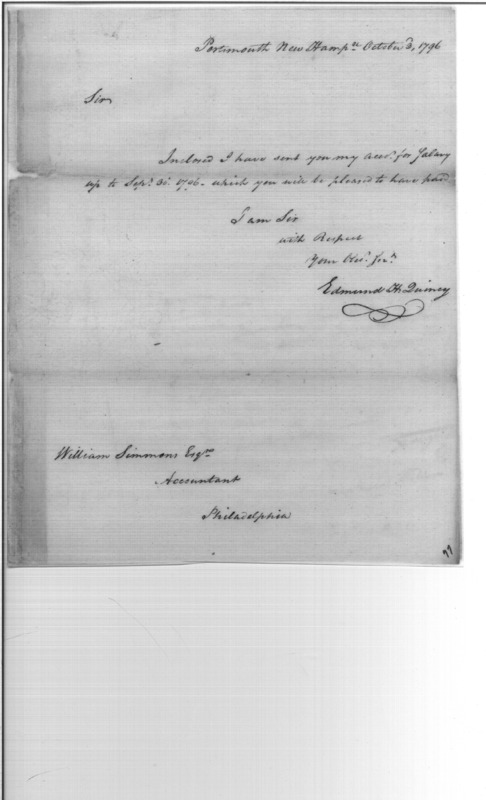 Portsmouth New Hampe. October 3, 1796
Sir
Inclosed I have sent you my acct. for Salary
up to Sept. 30. 1796. which you will be pleased to have paid
I am Sir
with Respect
Your Obt. Sert.
Edmund H. Quincy
William Simmons Esqre
Accountant
Philadelphia